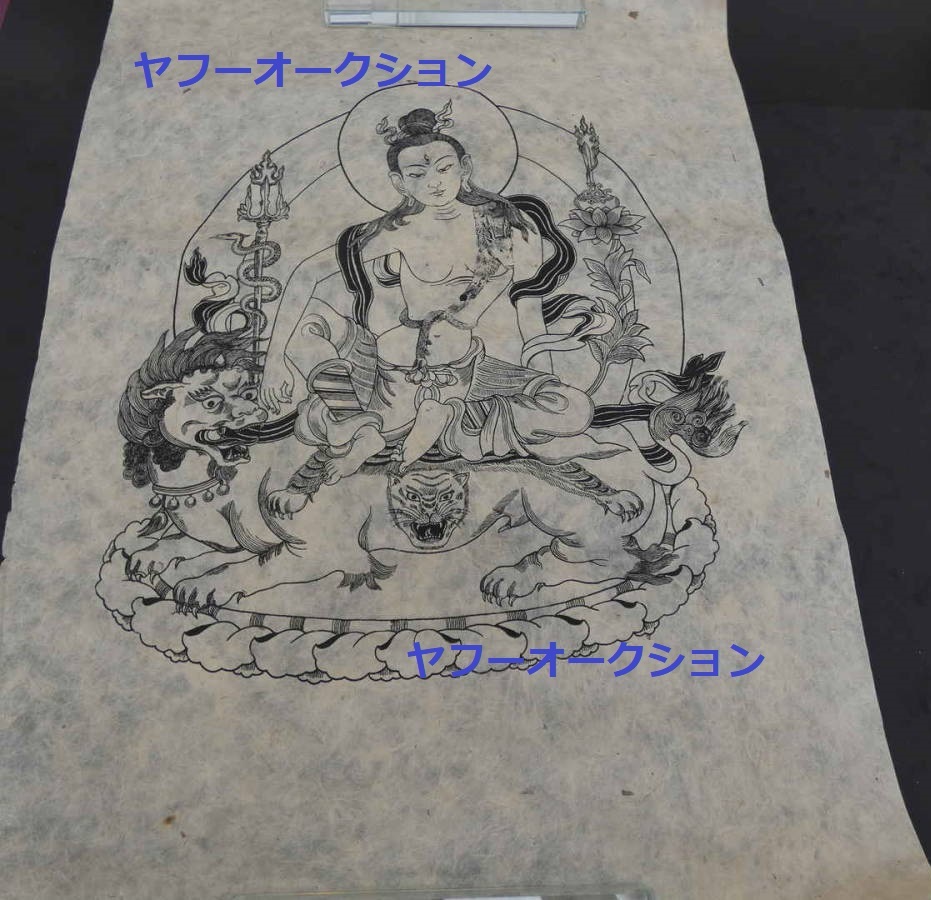 ヤフーオークション
ヤフーオークション